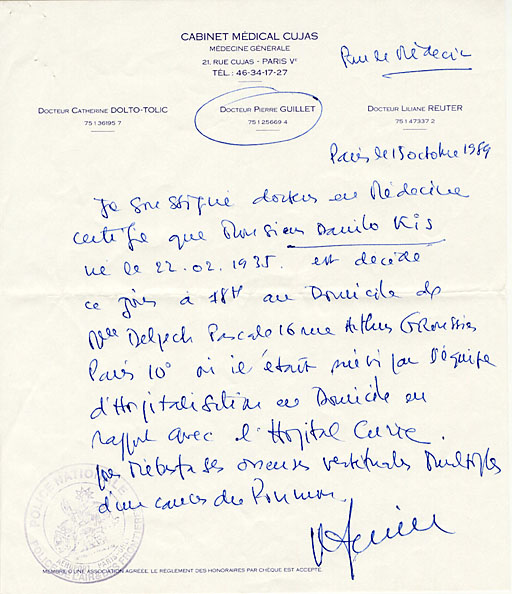 CABINET MÉDICAL CUJAS
MÉDECINE GÉNÉRALE
21, RUE CUJAS - PARIS Vᵉ
TÉL. : 46-34-17-27
Pour le Médecin
DOCTEUR CATHERINE DOLTO-TOLIC
75 1 36195 7
DOCTEUR PIERRE GUILLET
75 1 25669 4
DOCTEUR LILIANE REUTER
75 1 47337 2
Paris le 15 octobre 1989
Je soussigné docteur en Médecine
certifie que Monsieur Danilo Kis
né le 22.02.1935. est décédé
ce jour à 18H au Domicile de
Mlle Delpech Pascale 16 rue Arthur Groussier
Paris 10° où il était suivi par l'équipe
d'Hospitalisation en Domicile en
rapport avec l'Hopital Curie.
pour Métastases osseuses vertébrales Multiples
d'un cancer du Poumon.
POLICE NATIONALE
MEMBRE D'UNE ASSOCIATION AGRÉÉE, LE RÈGLEMENT DES HONORAIRES PAR CHÈQUE EST ACCEPTÉ